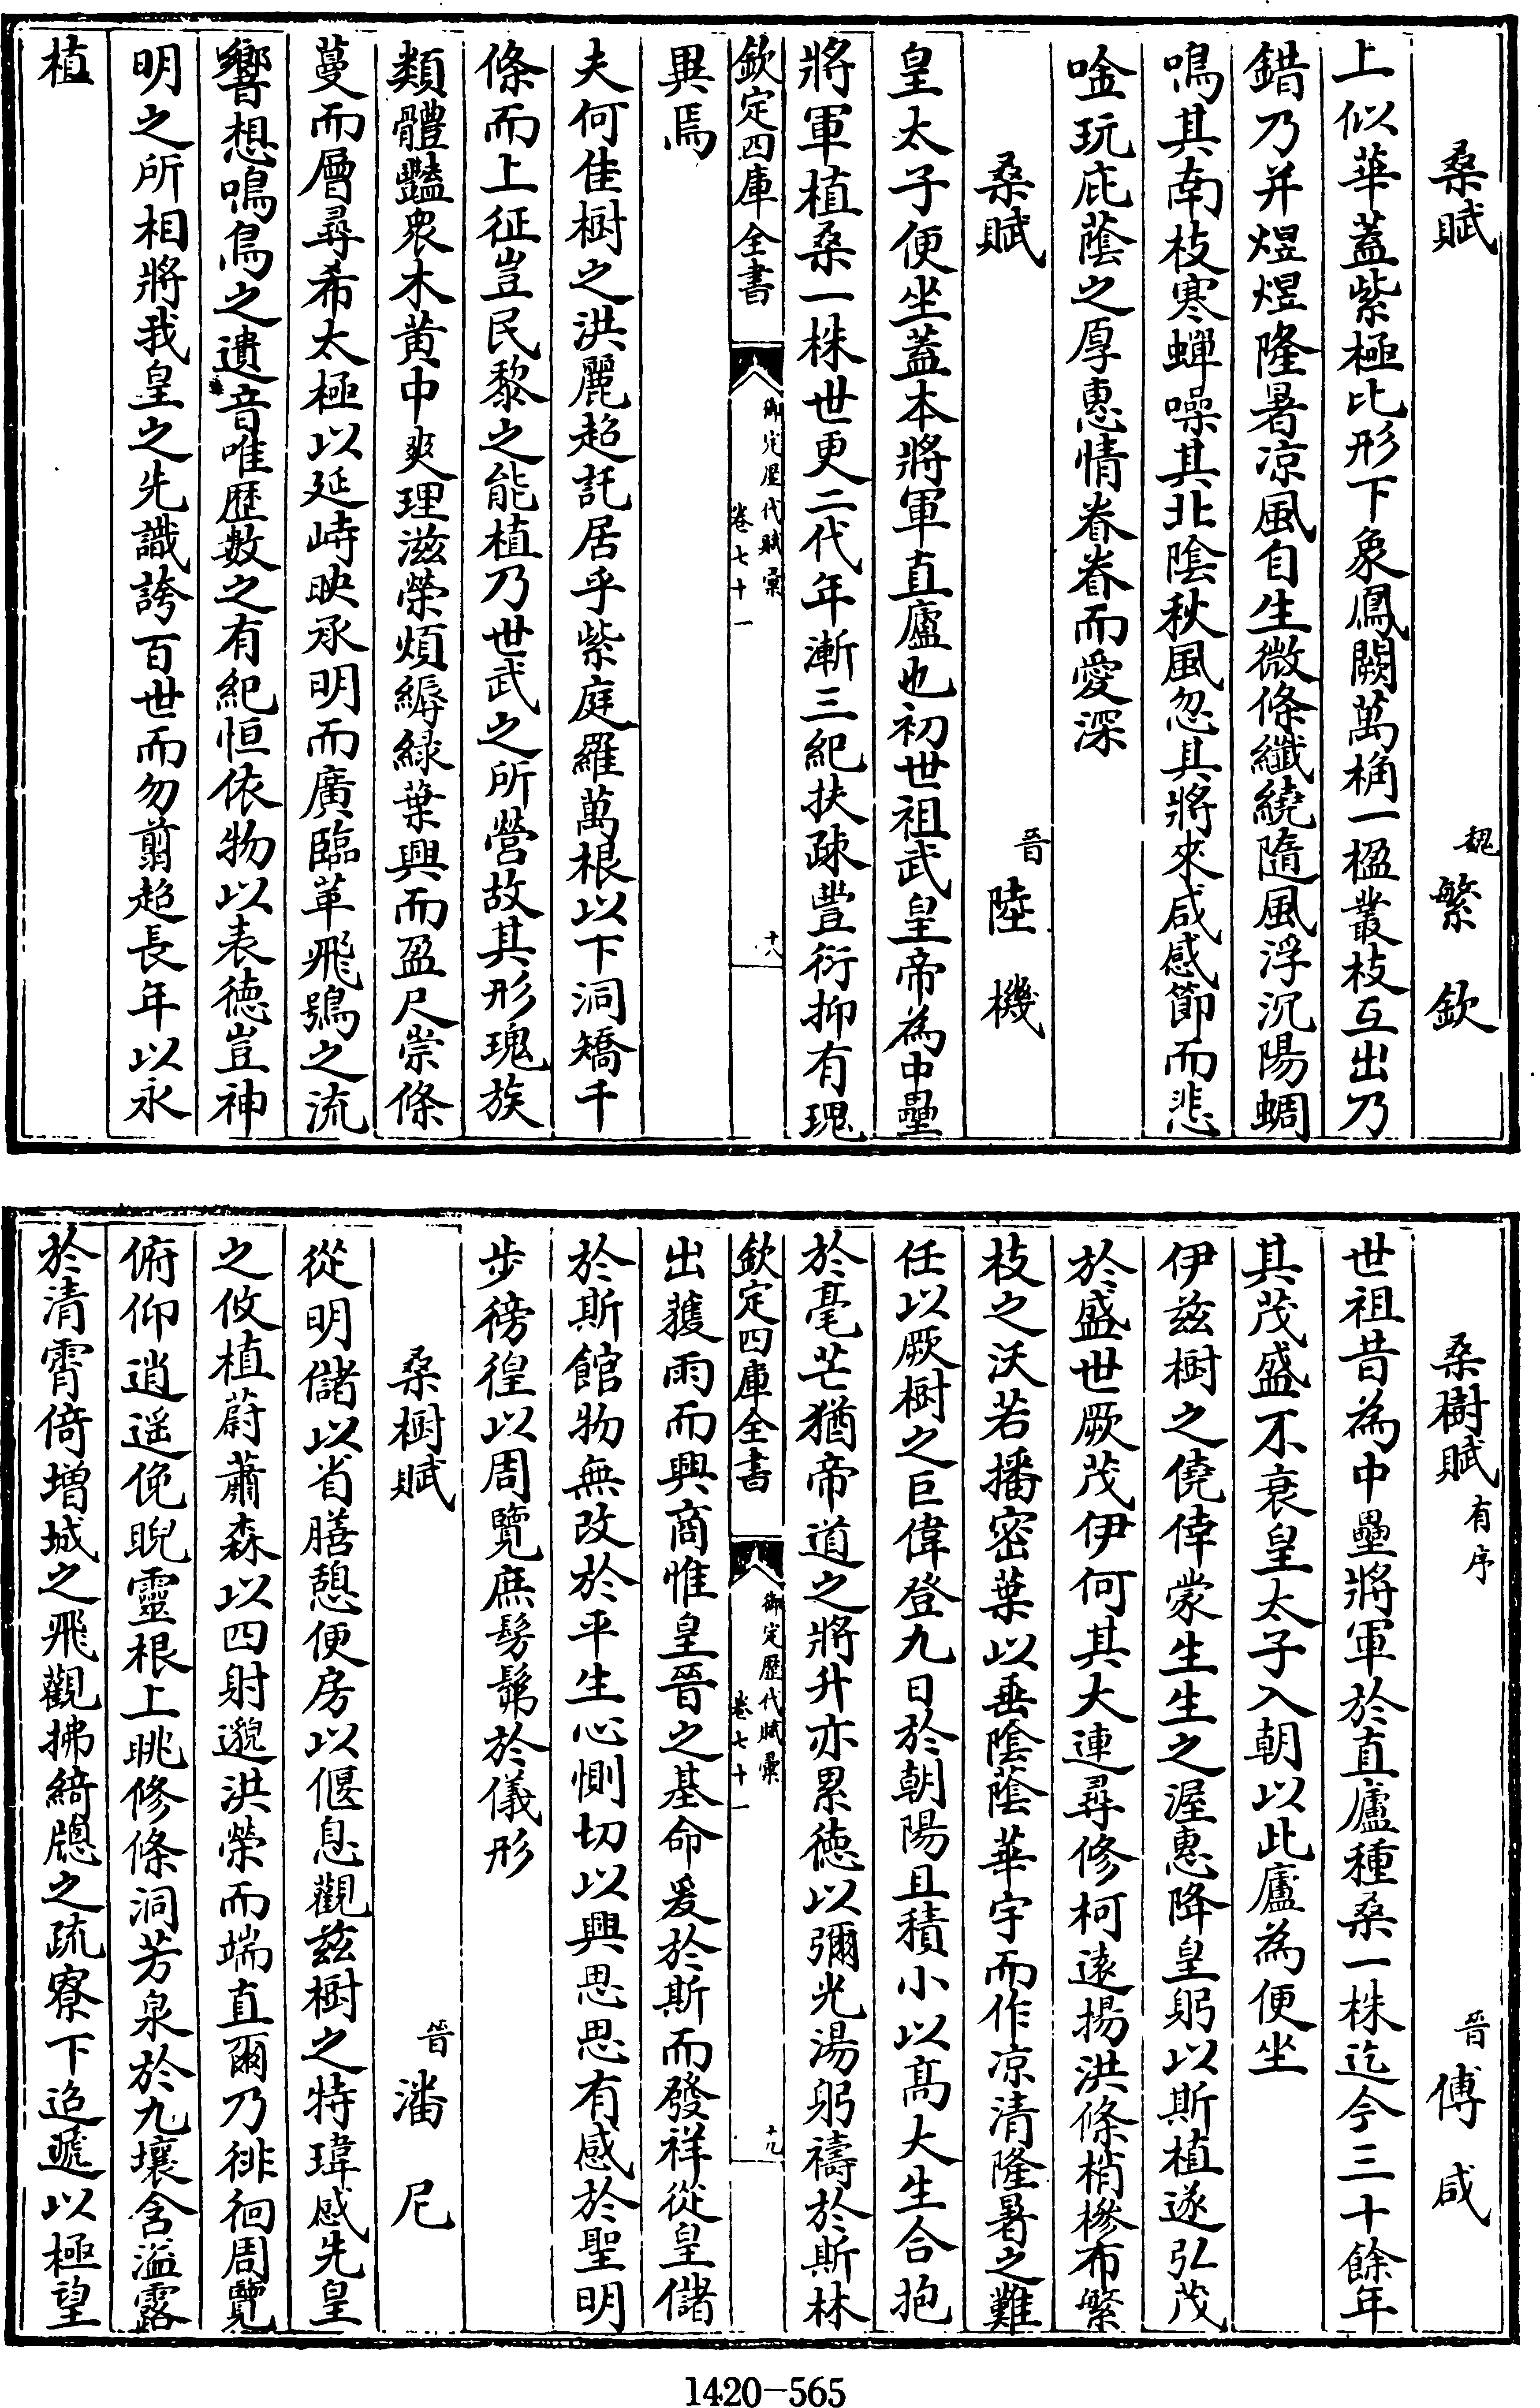 桑賦 魏 繁欽
上似華蓋紫極比形下象鳳闕萬桷一楹叢枝互出乃
錯乃并煜煜隆暑凉風自生微條纖繞隨風浮沉陽蜩
鳴其南枝寒蟬噪其北陰秋風忽其將來咸感節而悲
唫玩庇蔭之厚惠情眷眷而愛深
桑賦 晉 陸機
皇太子便坐蓋本將軍直廬也初世祖武皇帝為中壘
將軍植桑一株世更二代年漸三紀扶疎豐衍抑有瑰
欽定四庫全書 御定歷代賦彙 卷七十一 十八
異焉
夫何佳樹之洪麗超託居乎紫庭羅萬根以下洞矯千
條而上征豈民黎之能植乃世武之所營故其形瑰族
類體豔衆木黄中爽理滋榮煩縟緑葉興而盈尺崇條
蔓而層尋希太極以延峙映承明而廣臨革飛鴞之流
響想鳴鳥之遺音唯歴數之有紀恒依物以表徳豈神
明之所相將我皇之先識誇百世而勿翦超長年以永
植
桑樹賦 有序 晉 傅咸
世祖昔為中壘將軍於直廬種桑一株迄今三十餘年
其茂盛不衰皇太子入朝以此廬為便坐
伊兹樹之僥倖蒙生生之渥惠降皇躬以斯植遂弘茂
於盛世厥茂伊何其大連尋修柯逺揚洪條梢槮布繁
枝之沃若播密葉以垂陰蔭華宇而作凉清隆暑之難
任以厥樹之巨偉登九日於朝陽且積小以髙大生合抱
於毫芒猶帝道之將升亦累徳以彌光湯躬禱於斯林
欽定四庫全書 御定歷代賦彙 卷七十一 十九
出獲雨而興商惟皇晉之基命爰於斯而發祥從皇儲
於斯館物無改於平生心惻切以興思思有感於聖明
步徬徨以周覽庶髣髴於儀形
桑樹賦 晉 潘尼
從明儲以省膳憩便房以偃息觀兹樹之特瑋感先皇
之攸植蔚蕭森以四射邈洪榮而端直爾乃徘徊周覽
俯仰逍遥俛睨靈根上眺修條洞芳泉於九壤含溢露
於清霄倚増城之飛觀拂綺牕之疏寮下迢遞以極望
1420-565